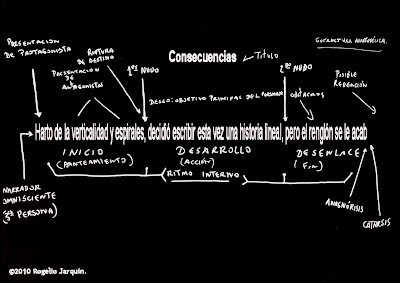 PRESENTACION
DE PROTAGONISTA
RUPTURA
DE DESTINO
PRESENTACION
DE
ANTAGONISTAS
1er NUDO
Consecuencias
TITULO
2do NUDO
ESTRUCTURA ANATÓMICA.
DESEO: OBJETIVO PRINCIPAL DEL PERSONAJE
OBSTÁCULOS
POSIBLE
REDENCIÓN
Harto de la verticalidad y espirales, decidió escribir esta vez una historia lineal, pero el renglón se le acab
INICIO
(PLANTEAMIENTO)
DESARROLLO
(ACCIÓN)
DESENLACE
(FIN)
RITMO INTERNO
NARRADOR
OMNISCIENTE
3ª PERSONA)
ANAGNÓRISIS
CATARSIS
©2010 Rogelio Jarquín.